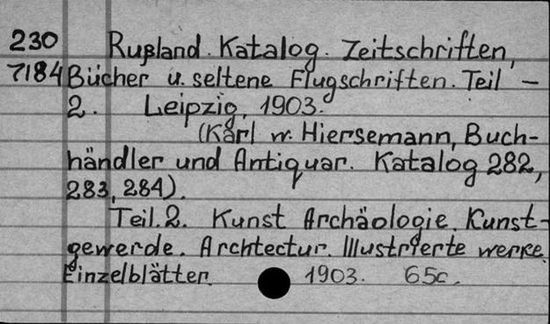 230 Rußland. Katalog. Zeitschriften,
7184 Bücher u. seltene Flugschriften. Teil –
2. Leipzig, 1903.
(Karl w. Hiersemann, Buch-
händler und Antiquar. Katalog 282,
283, 284).
Teil. 2. Kunst Archäologie. Kunst-
gewerde. Archtectur. Illustrierte werke.
Einzelblätter. 1903. 65c.